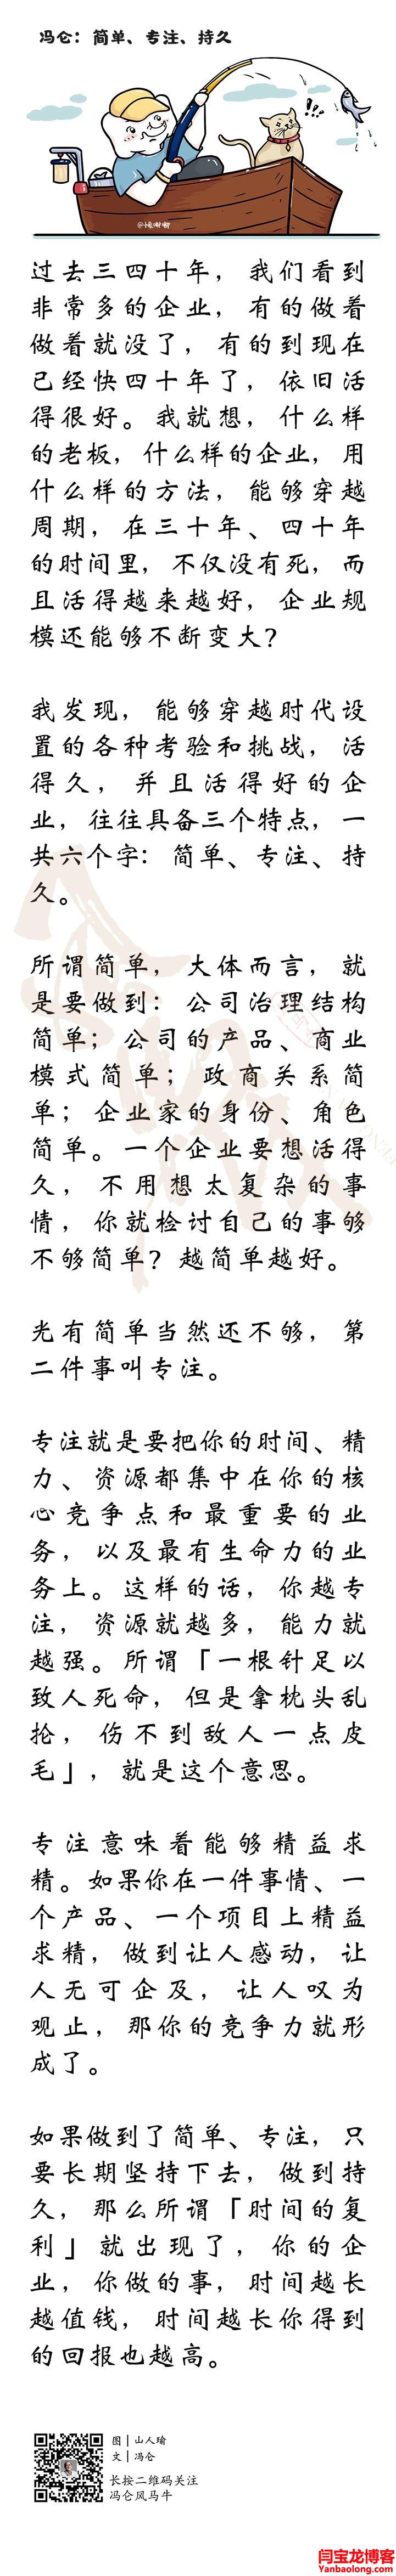 冯仑：简单、专注、持久
!!!
过去三四十年，我们看到
非常多的企业，有的做着
做着就没了，有的到现在
已经快四十年了，依旧活
得很好。我就想，什么样
的老板，什么样的企业，用
什么样的方法，能够穿越
周期，在三十年、四十年
的时间里，不仅没有死，而
且活得越来越好，企业规
模还能够不断变大？
我发现，能够穿越时代设
置的各种考验和挑战，活
得久，并且活得好的企
业，往往具备三个特点，一
共六个字：简单、专注、持
久。
所谓简单，大体而言，就
是要做到：公司治理结构
简单；公司的产品、商业
模式简单；政商关系简
单；企业家的身份、角色
简单。一个企业要想活得
久，不用想太复杂的事
情，你就检讨自己的事够
不够简单？越简单越好。
光有简单当然还不够，第
二件事叫专注。
专注就是要把你的时间、精
力、资源都集中在你的核
心竞争点和最重要的业
务，以及最有生命力的业
务上。这样的话，你越专
注，资源就越多，能力就
越强。所谓「一根针足以
致人死命，但是拿枕头乱
抡，伤不到敌人一点皮
毛」，就是这个意思。
专注意味着能够精益求
精。如果你在一件事情、一
个产品、一个项目上精益
求精，做到让人感动，让
人无可企及，让人叹为
观止，那你的竞争力就形
成了。
如果做到了简单、专注，只
要长期坚持下去，做到持
久，那么所谓「时间的复
利」就出现了，你的企
业，你做的事，时间越长
越值钱，时间越长你得到
的回报也越高。
图｜山人瑜
文｜冯仑
长按二维码关注
冯仑风马牛
闫宝龙博客
Yanbaolong.com